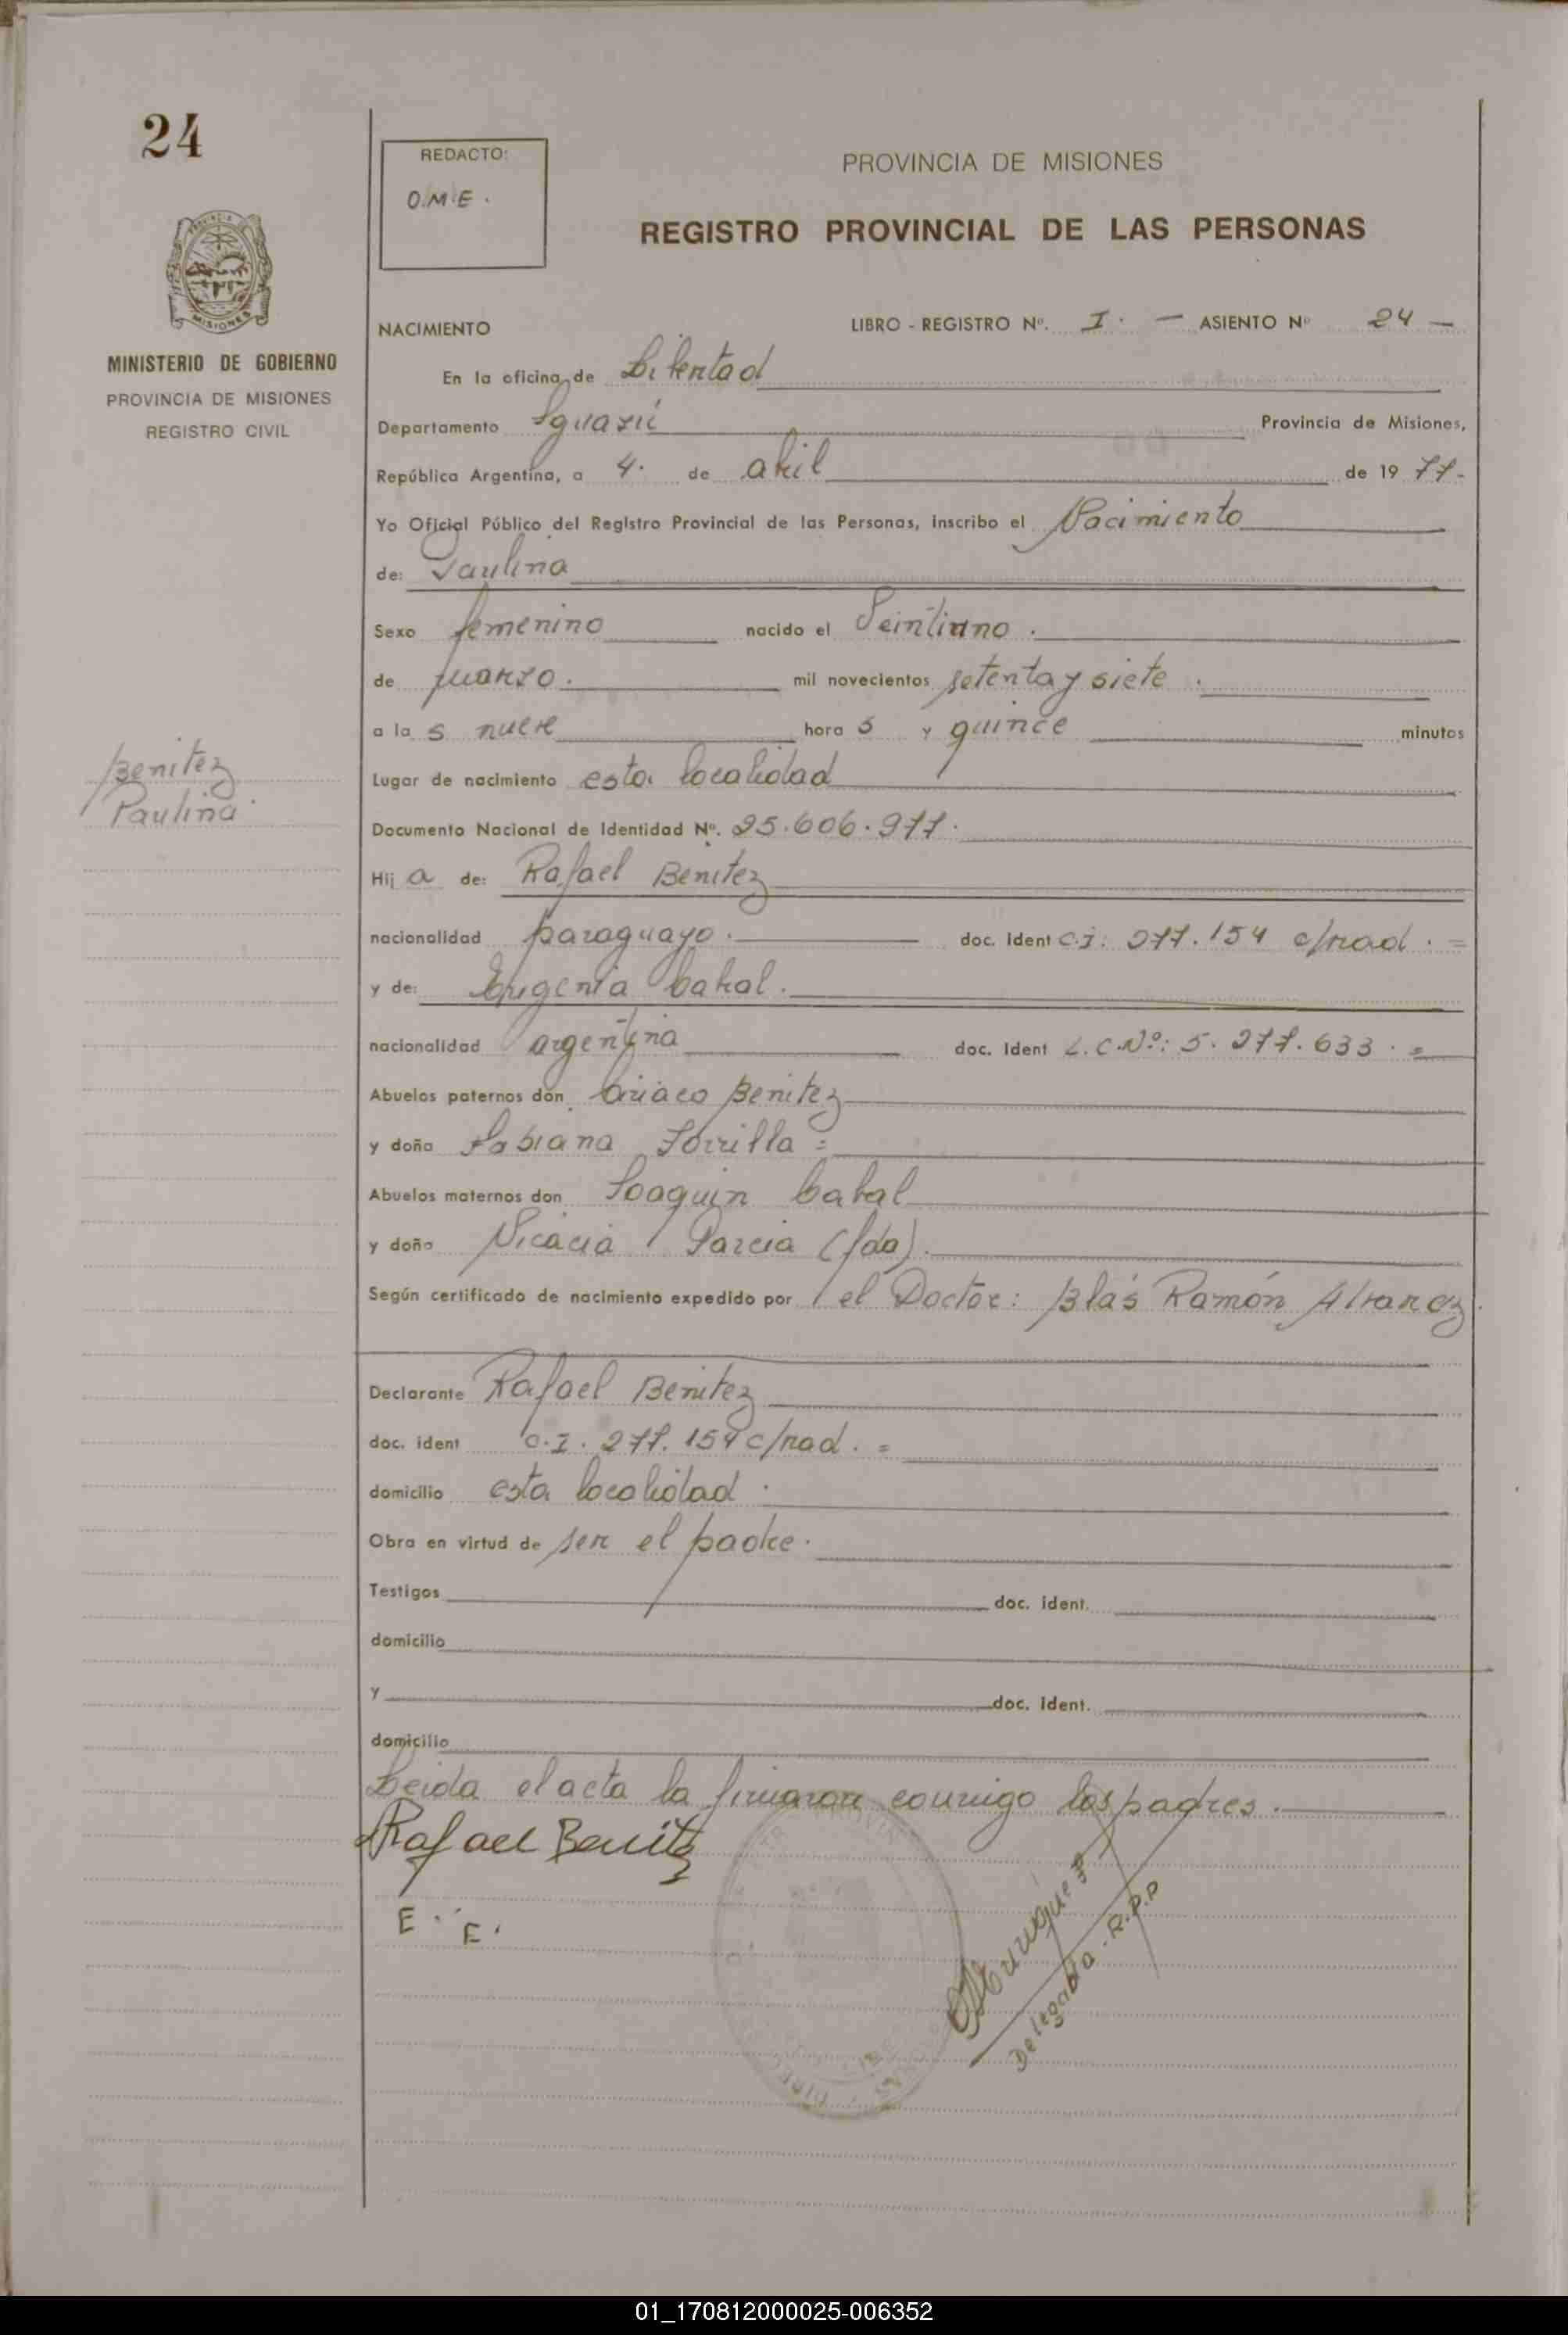 24
REDACTO:
O.M.E.
PROVINCIA DE MISIONES
REGISTRO PROVINCIAL DE LAS PERSONAS
MISIONES
MINISTERIO DE GOBIERNO
PROVINCIA DE MISIONES
REGISTRO CIVIL
NACIMIENTO LIBRO - REGISTRO Nº. I. — ASIENTO Nº 24 —
En la oficina de Libertad
Departamento Iguazú Provincia de Misiones,
República Argentina, a 4. de abril de 19 77-
Yo Oficial Público del Registro Provincial de las Personas, inscribo el Nacimiento
de: Paulina
Sexo femenino nacido el Veintiuno.
de marzo. mil novecientos setenta y siete.
a la s nueve hora s y quince minutos
Benitez
Paulina
Lugar de nacimiento esta localidad
Documento Nacional de Identidad Nº. 25.606.977.
Hij a de: Rafael Benitez
nacionalidad paraguayo. doc. Ident C.I. 277.154 c/nad. =
y de: Eugenia Cabal.
nacionalidad argentina doc. Ident L.C.Nº: 5.277.633. =
Abuelos paternos don Ciriaco Benitez
y doña Fabiana Torrilla =
Abuelos maternos don Joaquin Cabal
y doña Nicacia Garcia (fda).
Según certificado de nacimiento expedido por el Doctor: Blás Ramón Alvarez.
Declarante Rafael Benitez
doc. ident C.I. 277.154 c/nad. =
domicilio esta localidad.
Obra en virtud de ser el padre.
Testigos doc. ident.
domicilio
y doc. Ident.
domicilio
Leida el acta la firmaron conmigo los padres.
Rafael Benitez
E. E.
Delegada R.P.P
01_170812000025-006352